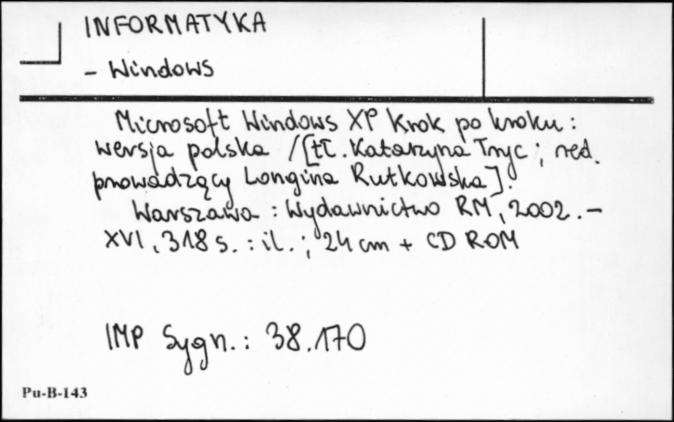 INFORMATYKA
- Windows
Microsoft Windows XP Krok po kroku :
wersja polska / [tł. Katarzyna Tryc ; red.
prowadzący Longina Rutkowska].
Warszawa : Wydawnictwo RM, 2002. -
XVI, 318 s. : il. ; 24 cm + CD ROM
IMP Sygn. : 38.170
Pu-B-143